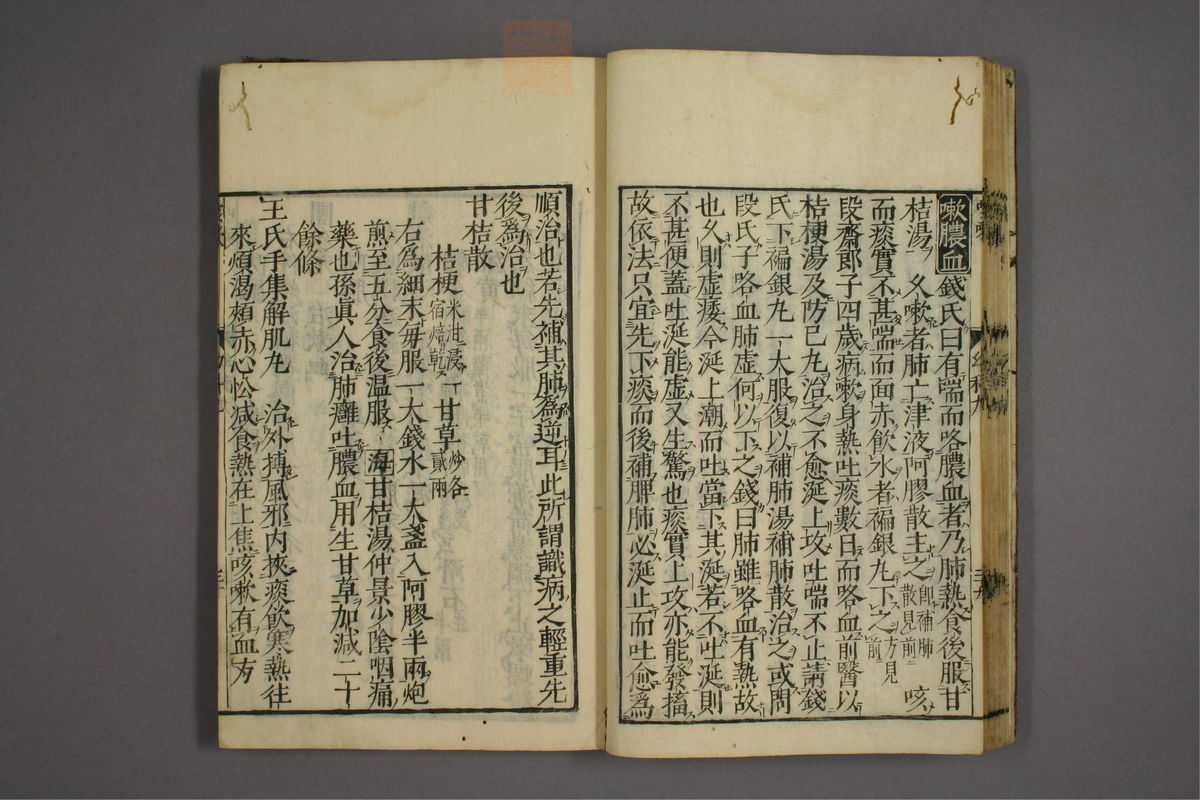 嗽膿血 錢氏曰有喘而咯膿血者乃肺熱食後服甘
桔湯 久嗽者肺亡津液阿膠散主之即補肺散見前 咳
而痰實不甚喘而面赤飲水者褊銀丸下之方見前
段齋郎子四歲病嗽身熱吐痰數日而咯血前醫以
桔梗湯及防己丸治之不愈涎上攻吐喘不止請錢
氏下褊銀丸一大服復以補肺湯補肺散治之或問
段氏子咯血肺虛何以下之錢曰肺雖咯血有熱故
也久則虛痿今涎上潮而吐當下其涎若不吐涎則
不甚便蓋吐涎能虛又生驚也痰實上攻亦能發搐
故依法只宜先下痰而後補脾肺必涎止而吐愈爲
順治也若先補其肺為逆耳此所謂識病之輕重先
後爲治也
甘桔散
桔梗米泔浸一宿焙乾 甘草炒各貳兩
右為細末每服一大錢水一大盞入阿膠半兩炮
煎至五分食後温服 海甘桔湯仲景少陰咽痛
藥也孫眞人治肺癰吐膿血用生甘草加減二十
餘條
王氏手集解肌丸 治外搏風邪内挾痰飲寒熱往
來煩渴頰赤心忪減食熱在上焦咳嗽有血方